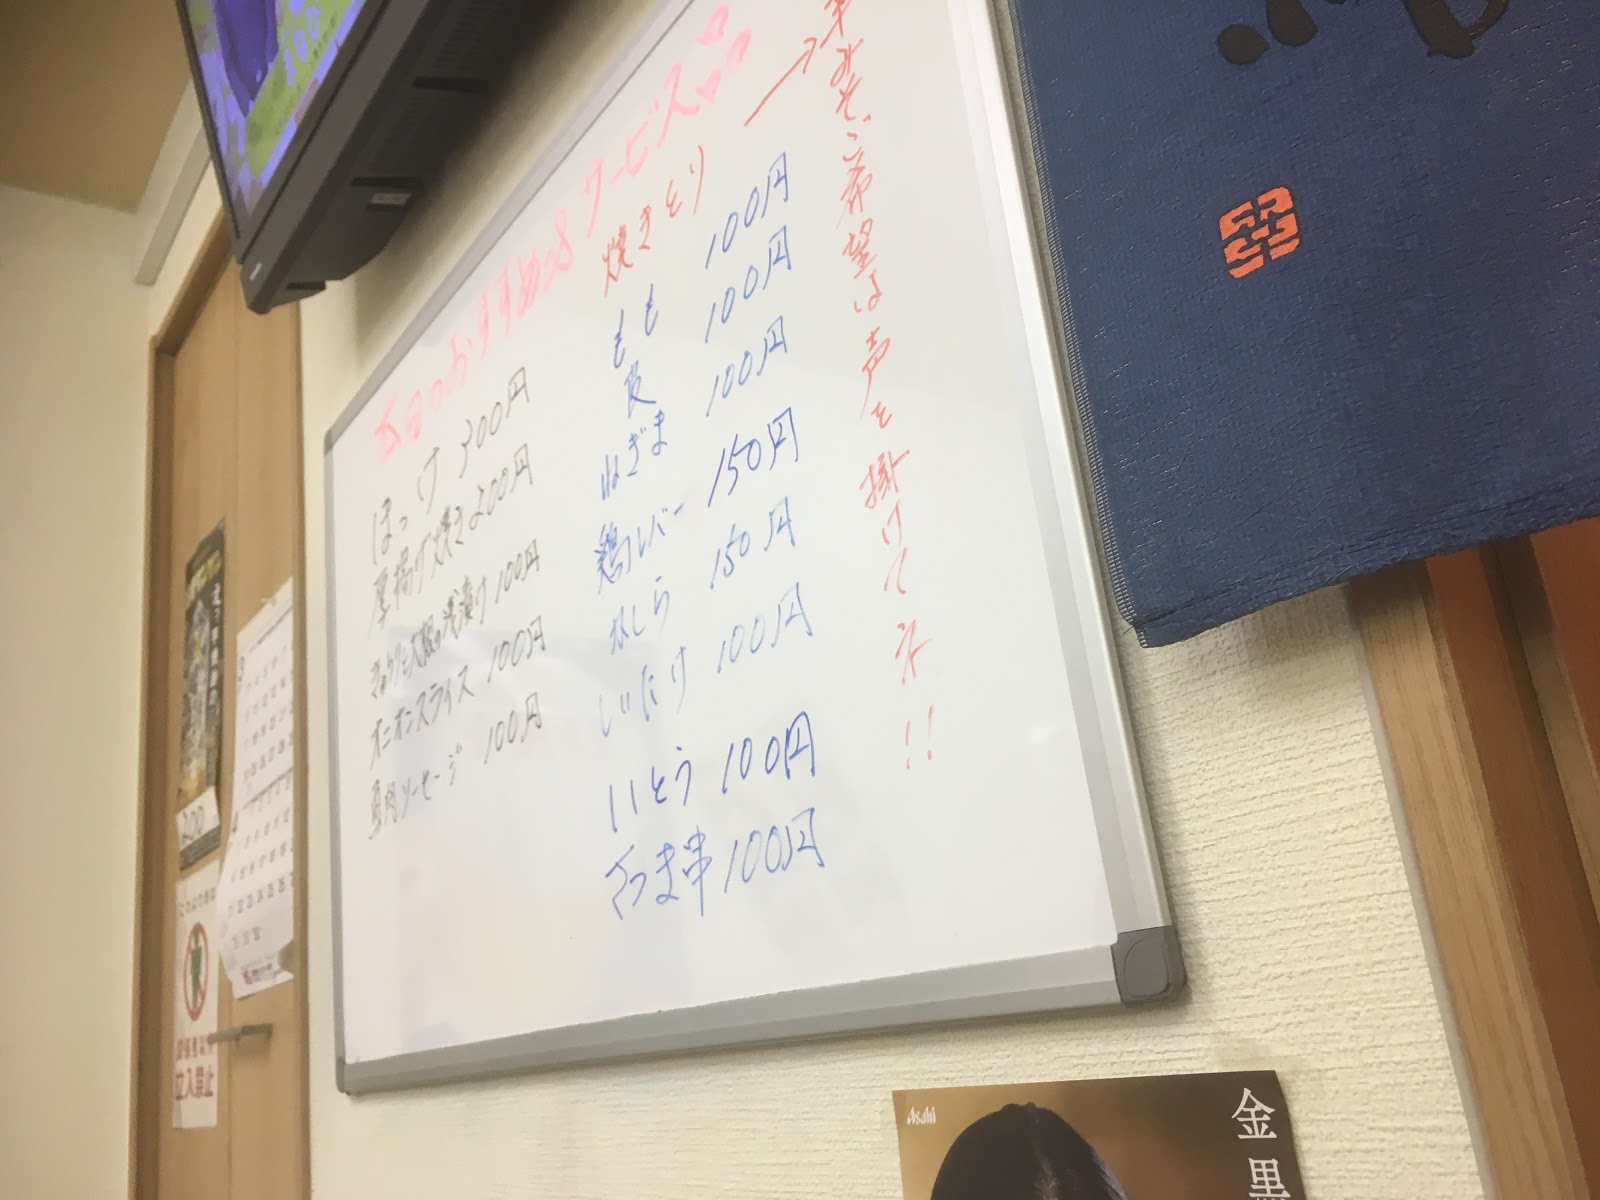 本日のおすすめ&サービス品
ほっけ 200円
厚揚げ焼き 200円
きゅうりと大根の浅漬け 100円
オニオンスライス 100円
魚肉ソーセージ 100円
焼きとり
もも 100円
皮 100円
ねぎま 100円
鶏レバー 150円
かしら 150円
しいたけ 100円
いとう 100円
さつま串 100円
辛みそ、ご希望は声を掛けて ネ!!
立入禁止
Asahi
金
黒